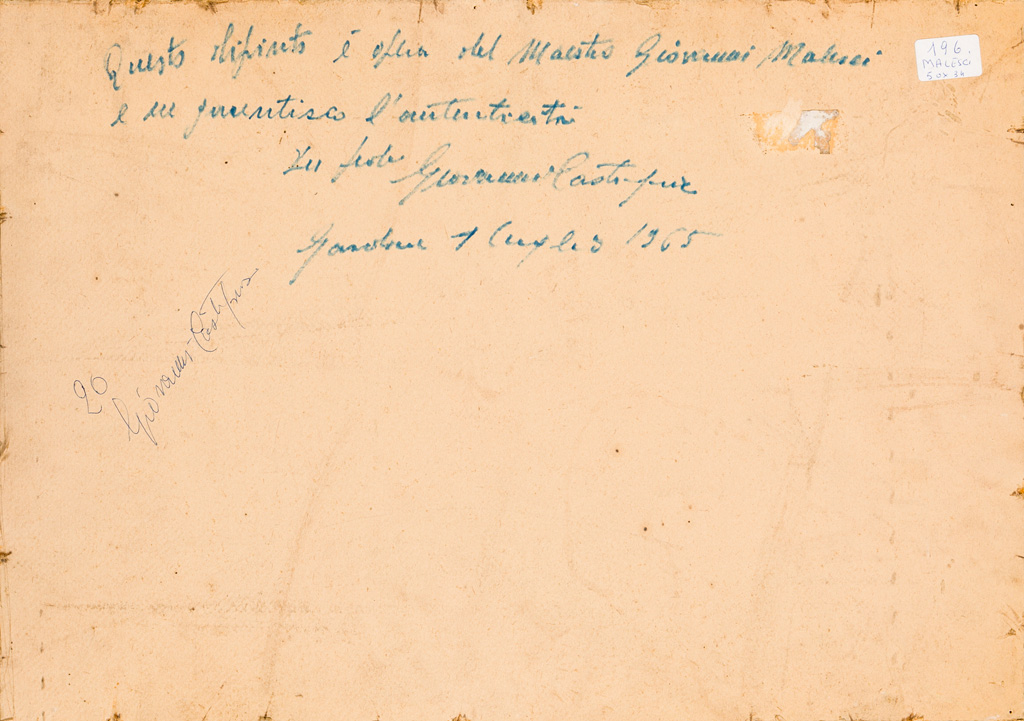 Questo dipinto è opera del Maestro Giovanni Malesci
e ne garantisco l'autenticità
In fede Giovanni Castagna
1 luglio 1965
196.
MALESCI
50x34
26
Giovanni